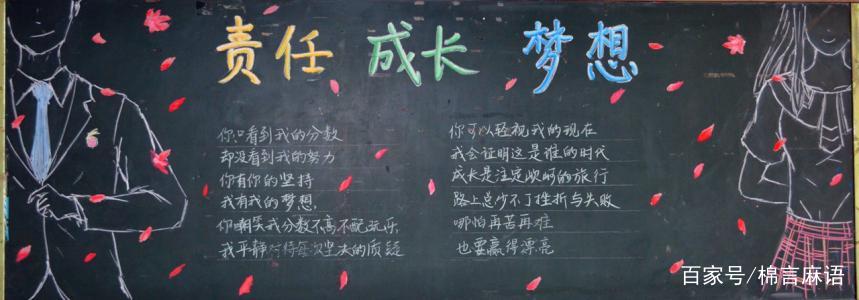 责任 成长 梦想
你只看到我的分数
却没看到我的努力
你有你的坚持
我有我的梦想
你嘲笑我分数不高不配玩乐
我平静对待每次坚决的质疑
你可以轻视我的现在
我会证明这是谁的时代
成长是注定坎坷的旅行
路上是少不了挫折与失败
哪怕再苦再难
也要赢得漂亮
百家号/棉言麻语